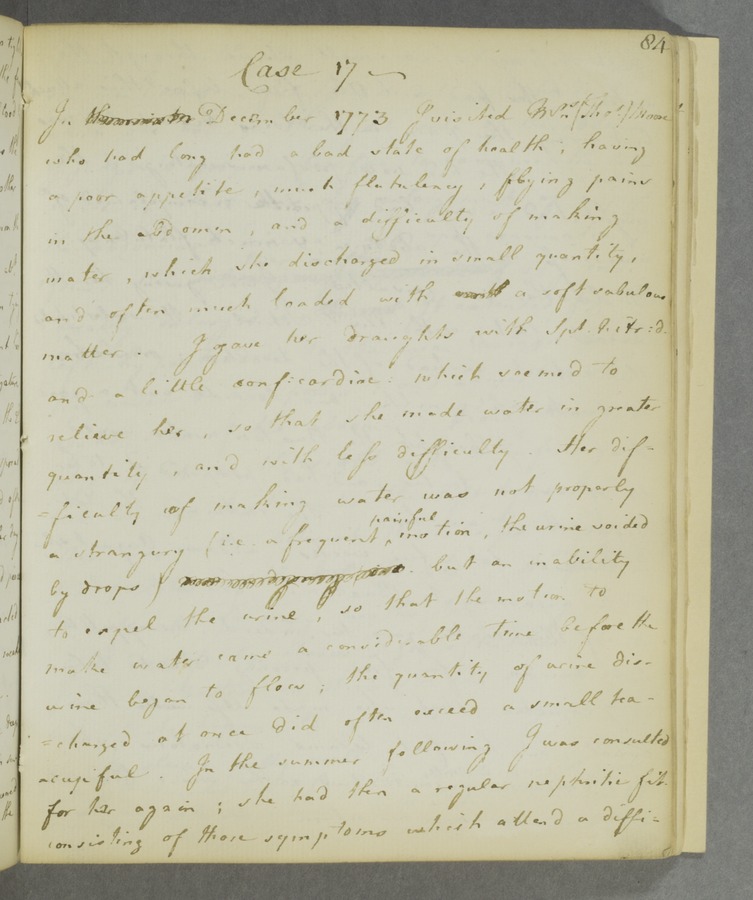 84
Case 17
In December 1773 I visited Mrs (Thos) Moore
who had long had a bad state of health; having
a poor appetite, much flatulency, flying pains
in the abdomen, and a difficulty of making
water, which she discharged in small quantity,
and often much loaded with a soft sabulous
matter. I gave her draughts with Spt. Nitr: d.
and a little conf: cardiac: which seemed to
relieve her, so that she made water in greater
quantity, and with less difficulty. Her dif-
=ficulty of making water was not properly
a strangury (i.e. a frequent painful motion, the urine voided
by drops) but an inability
to expel the urine, so that the motion to
make water came a considerable time before the
urine began to flow; the quantity of urine dis-
=charged at once did often exceed a small tea-
acupful. In the summer following I was consulted
for her again; she had then a regular nephritic fit
consisting of those symptoms which attend a diffi=